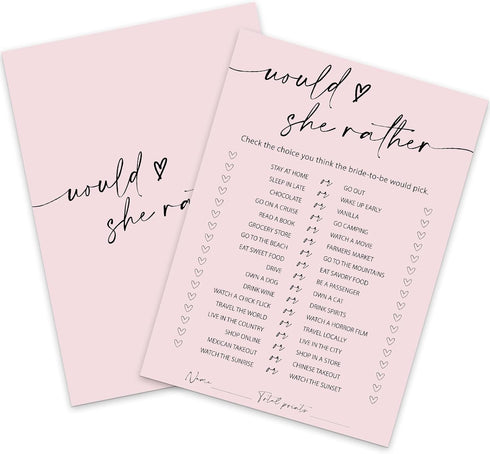 would
she rat
would
she rather
Check the choice you think the bride-to-be would pick.
STAY AT HOME or GO OUT
SLEEP IN LATE or WAKE UP EARLY
CHOCOLATE or VANILLA
GO ON A CRUISE or GO CAMPING
READ A BOOK or WATCH A MOVIE
GROCERY STORE or FARMERS MARKET
GO TO THE BEACH or GO TO THE MOUNTAINS
EAT SWEET FOOD or EAT SAVORY FOOD
DRIVE or BE A PASSENGER
OWN A DOG or OWN A CAT
DRINK WINE or DRINK SPIRITS
WATCH A CHICK FLICK or WATCH A HORROR FILM
TRAVEL THE WORLD or TRAVEL LOCALLY
LIVE IN THE COUNTRY or LIVE IN THE CITY
SHOP ONLINE or SHOP IN A STORE
MEXICAN TAKEOUT or CHINESE TAKEOUT
WATCH THE SUNRISE or WATCH THE SUNSET
Name Total points